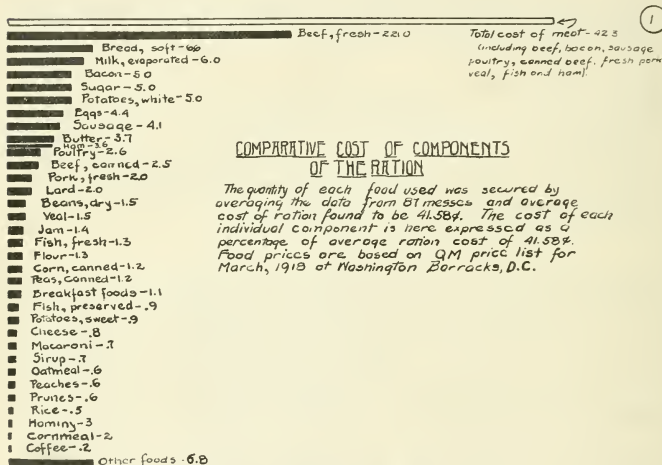 1
Beef, fresh-22.0
Total cost of meat-42.3
(including beef, bacon, sausage
poultry, canned beef, fresh pork
veal, fish and ham).
Bread, soft-6.6
Milk, evaporated-6.0
Bacon-5.0
Sugar-5.0
Potatoes, white-5.0
Eggs-4.4
Sausage-4.1
Butter-3.7
Ham-3.6
Poultry-2.6
Beef, canned-2.5
Pork, fresh-2.0
Lard-2.0
Beans, dry-1.5
Veal-1.5
Jam-1.4
Fish, fresh-1.3
Flour-1.3
Corn, canned-1.2
Peas, canned-1.2
Breakfast foods-1.1
Fish, preserved-.9
Potatoes, sweet-.9
Cheese-.8
Macaroni-.7
Sirup-.7
Oatmeal-.6
Peaches-.6
Prunes-.6
Rice-.5
Hominy-3
Cornmeal-2
Coffee-.2
Other foods-6.8
COMPARATIVE COST OF COMPONENTS
OF THE RATION
The quantity of each food used was secured by
averaging the data from 87 messes and average
cost of ration found to be 41.58¢. The cost of each
individual component is here expressed as a
percentage of average ration cost of 41.58¢.
Food prices are based on QM price list for
March, 1919 at Washington Barracks, D.C.